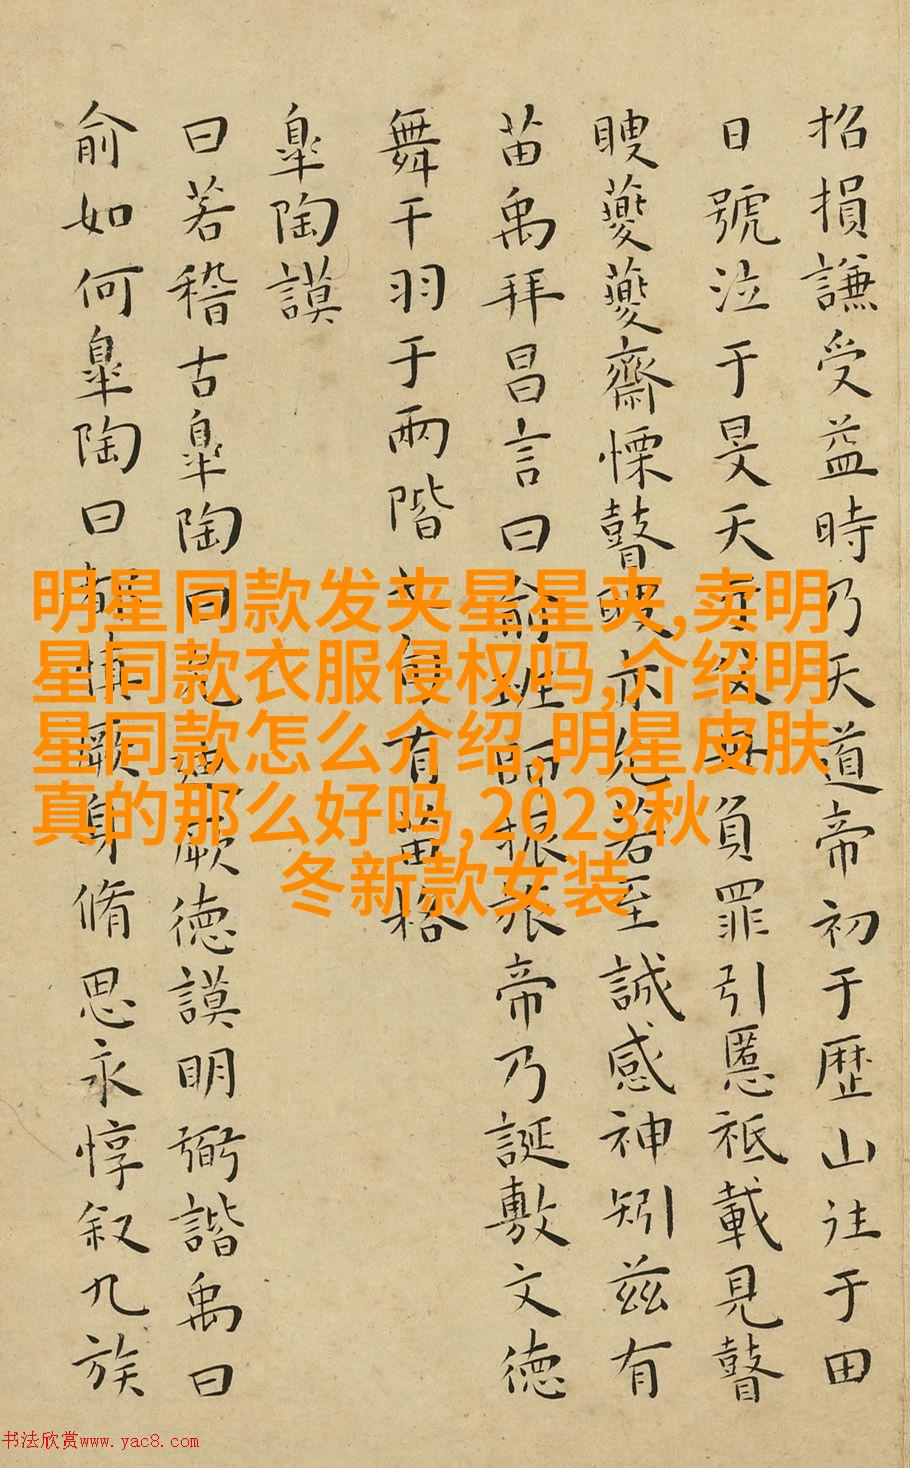 招損謙受益時乃天道帝初于歷山往于田
日號泣于旻天于父母負罪引慝祗載見瞽
瞍夔夔齋慄瞽瞍亦允若至誠感神矧茲有
苗禹拜昌言曰俞班師振旅帝乃誕敷文德
舞干羽于兩階七旬有苗格
臯陶謨
曰若稽古臯陶曰允迪厥德謨明弼諧禹曰
俞如何臯陶曰都慎厥身脩思永惇叙九族
明星同款发夹星星夹,卖明
星同款衣服侵权吗,介绍明
星同款怎么介绍,明星皮肤
真的那么好吗,2023秋
冬新款女装
书法欣赏www.yac8.com